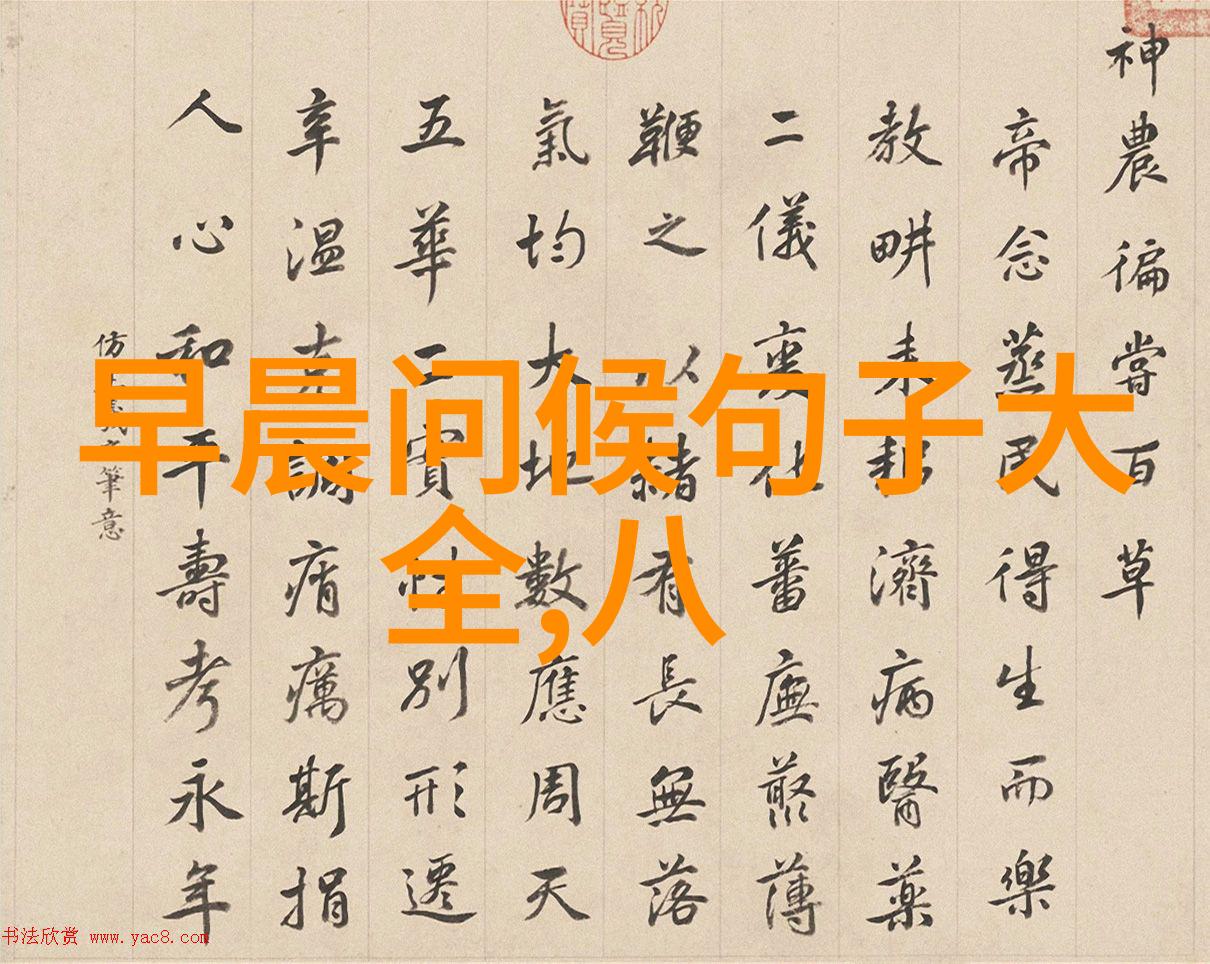 早晨问候句子大
全,八
神農徧嘗百草
帝念蒸民得生而樂
教畊耒耜濟病醫藥
二儀蕃廡薄
鞭之以赭有長無落
氣均大地數應周天
五華實性別形遷
辛温克調痟癘斯捐
人心和平壽考永年
仿筆意
书法欣赏 www.yac8.com